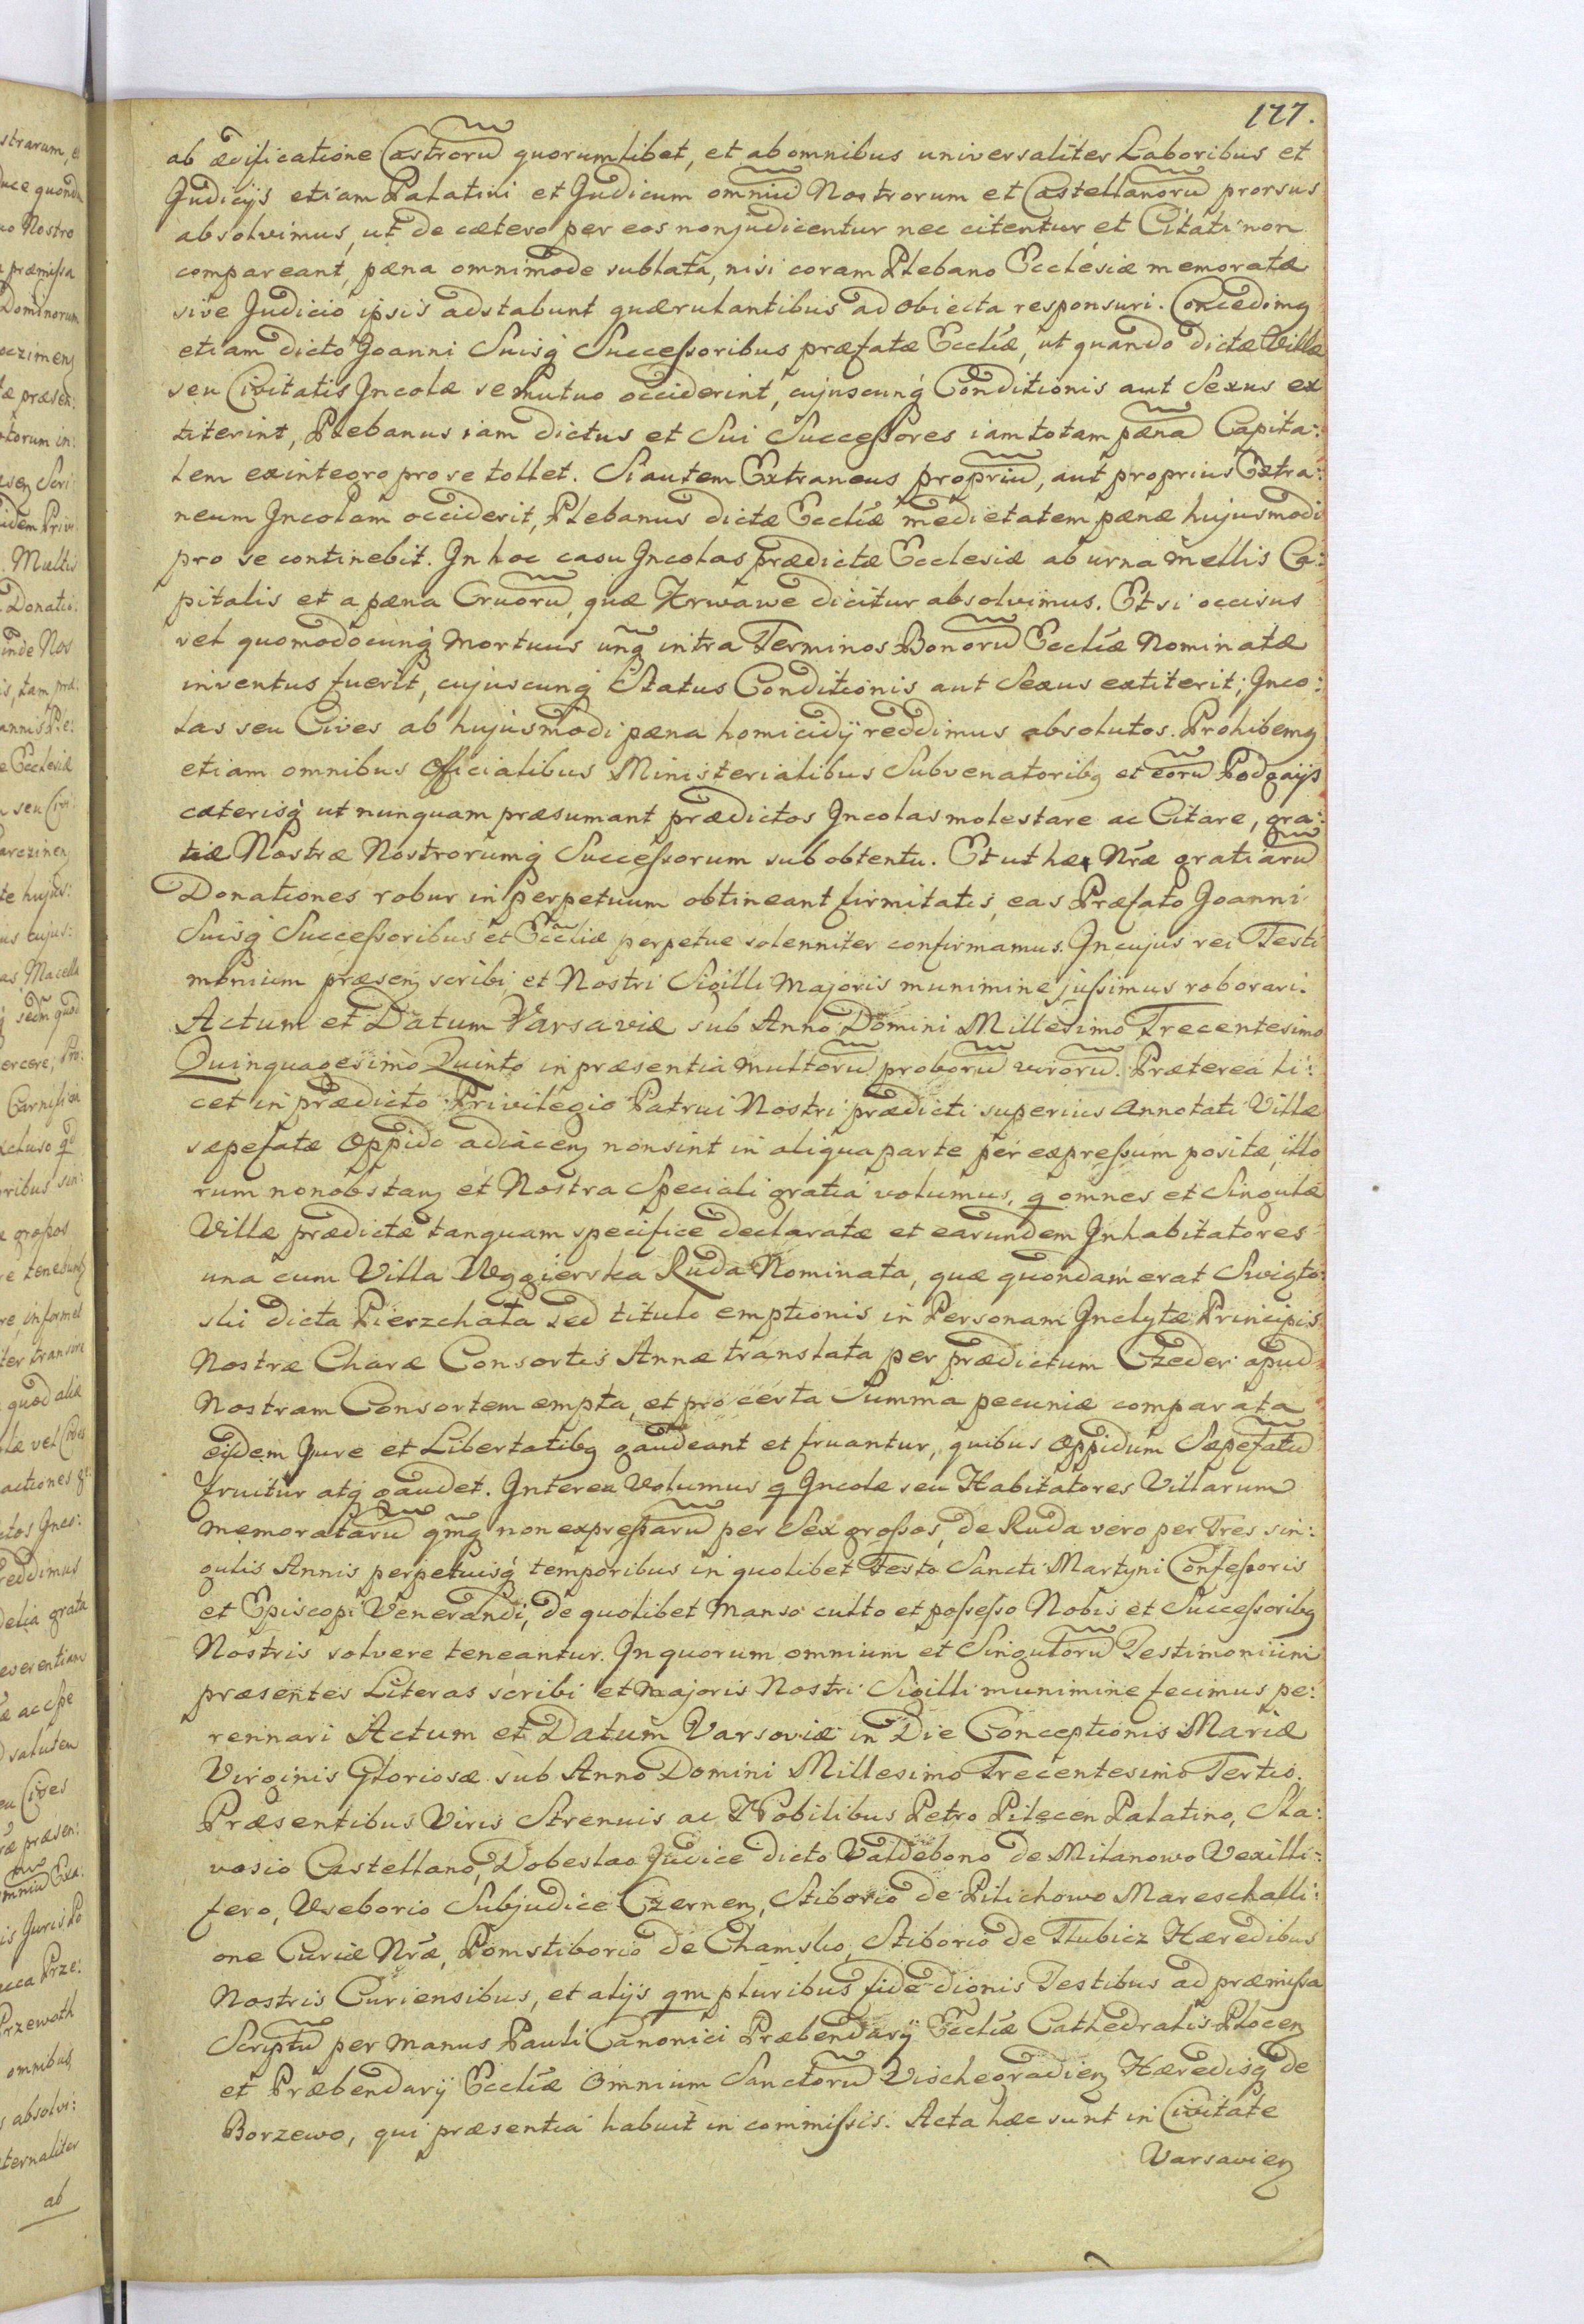 177.
ab ædificatione Castrorũ quorumlibet, et ab omnibus universaliter Laboribus et
Judicijs etiam Palatini et Judicum omniũ Nostrorum et Castellanorũ prorsus
absolvimus, ut de cætero per eos non judicentur nec citentur, et Citati non
compareant, pæna omnimode sublata, nisi coram Plebano Ecclesiæ memoratæ
sive Judicio ipsis adstabunt quærulantibus ad obiecta responsuri. Concedimg
etiam dicto Joanni Suisq́ Successoribus præfatæ Eccliæ, ut quando dictæ Villæ
seu Civitatis Jncolæ se mutuo occiderint, cujuscunq́ Conditionis aut Sexus ex
titerint, Plebanus iam dictus et Sui Successores iam totam pænã Capita:
lem exintegro pro se tollet. Si autem Extraneus propriũ, aut proprius Extra:
neum Jncolam occiderit, Plebanus dictæ Eccliæ medietatem pænæ hujusmodi
pro se continebit. Jn hoc casu Jncolas prædictæ Ecclesiæ ab urna mellis Ca:
pitalis et a pæna Cruorũ, quæ Krwawe dicitur absolvimus. Et si occisus
vel quomodocunq́ mortuus unq̃ intra Terminos Bonorũ Eccliæ Nominatæ
inventus fuerit, cujuscunq́ Status Conditionis aut Sexus extiterit; Jnco:
las seu Cives ab hujusmodi pæna homicidij reddimus absolutos. Prohibemg
etiam omnibus Officialibus Ministerialibus Subvenatoribg et eorũ Podgaijs
cæterisq́ ut nunquam præsumant prædictos Jncolas molestare ac Citare, gra:
tiæ Nostræ Nostrorumq́ Successorum sub obtentu. Et ut hæ Nræ gratiarũ
Donationes robur in perpetuum obtineant firmitatis, eas Præfato Joanni
Suisq́ Successoribus et Eccliæ perpetue solenniter confirmamus. Jn cujus rei Testi
monium præseng scribi et Nostri Sigilli Majoris munimine jussimus roborari.
Actum et Datum Varsaviæ sub Anno Domini Millesimo Trecentesimo
Quinquagesimo Quinto in præsentia multorũ proborũ virorũ. Præterea li:
cet in prædicto Privilegio Patrui Nostri prædicti superius Annotati Villæ
sæpefatæ Oppido adiaceng non sint in aliqua parte per expressum positæ, illo
rum nonobstang et Nostra Speciali gratia volumus, q omnes et Singulæ
Villæ prædictæ tanquam specifice declaratæ et earundem Jnhabitatores
una cum Villa Węgierska Ruda Nominata, quæ quondam erat Swigto:
ski dicta Pierzchała sed titulo emptionis in Personam Jnclytæ Principis
Nostræ Charæ Consortis Annæ translata per prædictum Czeder apud
Nostram Consortem empta, et pro certa Summa pecuniæ comparata
eisdem Jure et Libertatibg gaudeant et fruantur, quibus Oppidum Sæpefatũ
fruitur atq́ gaudet. Jnterea Volumus q Jncolæ seu Habitatores Villarum
memoratarũ qm̃g non expressarũ per Sex grossos, de Ruda vero per Tres sin:
gulis Annis perpetuisq́ temporibus in quolibet Festo Sancti Martyni Confessoris
et Episcopi Venerandi, de quolibet Manso culto et possesso Nobis et Successoribg
Nostris solvere teneantur. Jn quorum omnium et Singulorũ Testimonium
præsentes Literas scribi et majoris Nostri Sigilli munimine fecimus pe:
rennari Actum et Datum Varsoviæ in Die Conceptionis Mariæ
Virginis Gloriosæ sub Anno Domini Millesimo Trecentesimo Tertio.
Præsentibus Viris Strenuis ac Nobilibus Petro Pilecen Palatino, Sła:
vosio Castellano, Dobeslao Judice dicto Valdebono de Milanowo Vexilli:
fero, Vseborio Subjudice Czerneng, Stiborio de Pilichowo Mareschalli:
one Curiæ Nræ, Pomstiborio de Chamsko, Stiborio de Tłubicz Hæredibus
Nostris Curiensibus, et alijs qm pluribus fide dignis Testibus ad præmissa
Scriptũ per manus Pauli Canonici Præbendarij Eccliæ Cathedralis Ploceng
et Præbendarij Eccliæ Omnium Sanctorũ Vischegradieng Hæredisq́ de
Borzewo, qui præsentia habuit in commissis. Acta hæc sunt in Civitate
Varsavieng